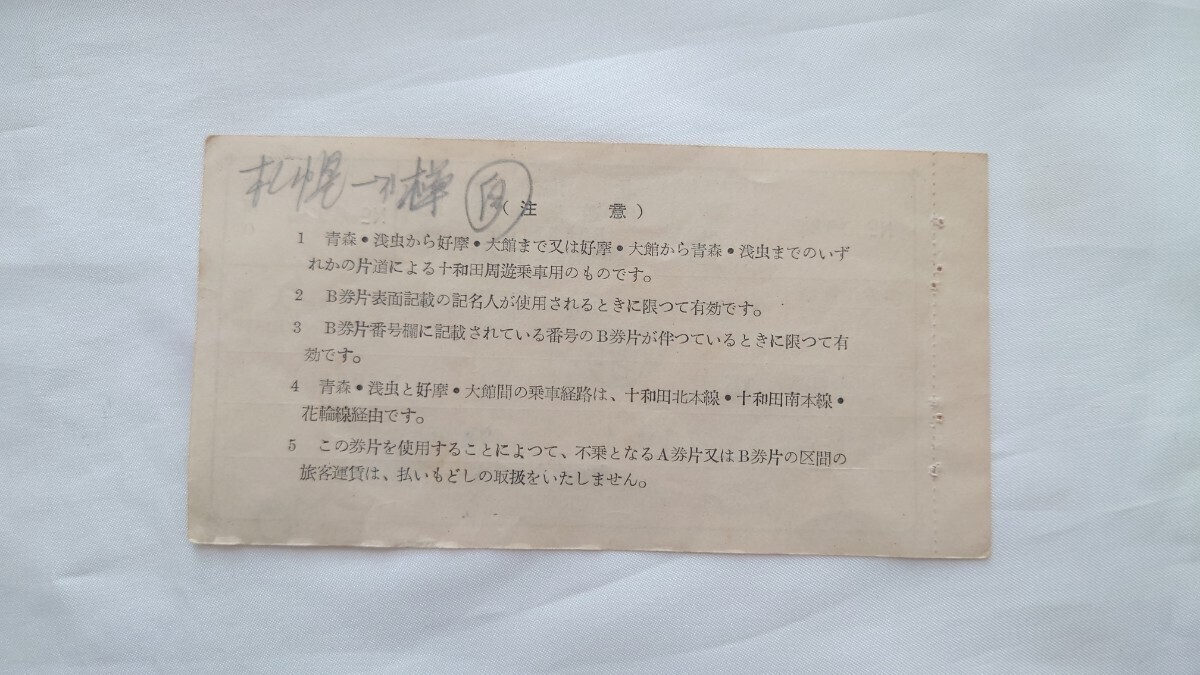 札幌
（注　意）
1　青森・浅虫から好摩・大館まで又は好摩・大館から青森・浅虫までのいず
れかの片道による十和田周遊乗車用のものです。
2　B券片表面記載の記名人が使用されるときに限つて有効です。
3　B券片番号欄に記載されている番号のB券片が伴つているときに限つて有
効です。
4　青森・浅虫と好摩・大館間の乗車経路は、十和田北本線・十和田南本線・
花輪線経由です。
5　この券片を使用することによつて、不乗となるA券片又はB券片の区間の
旅客運賃は、払いもどしの取扱をいたしません。